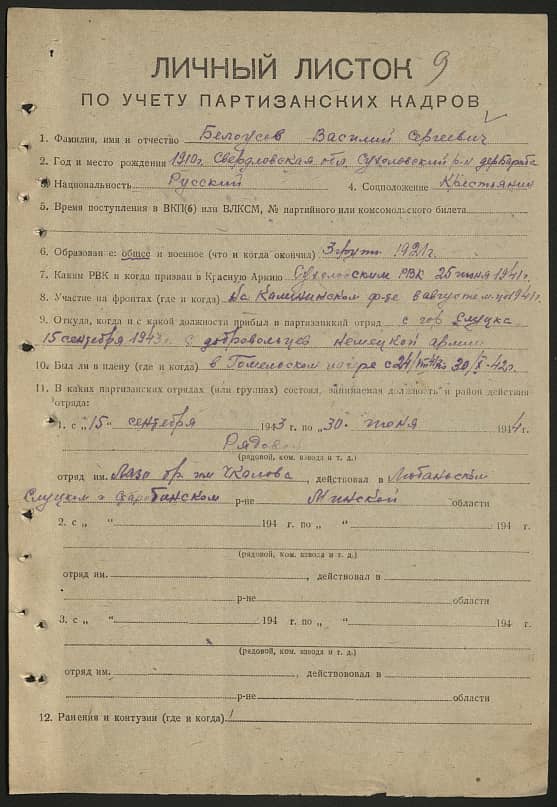 9
ЛИЧНЫЙ ЛИСТОК
ПО УЧЕТУ ПАРТИЗАНСКИХ КАДРОВ
1. Фамилия, имя и отчество Белоусов Василий Сергеевич
2. Год и место рождения 1910г. Свердловская обл. Сухоловский р-н дер.
3. Национальность Русский 4. Соцположение Крестьянин
5. Время поступления в ВКП(б) или ВЛКСМ, № партийного или комсомольского билета
6. Образование: общее и военное (что и когда окончил) 3 1921г.
7. Каким РВК и когда призван в Красную Армию Сухоловским РВК 25 1941г.
8. Участие на фронтах (где и когда) На Калининском ф-те в августе м-це 1941г.
9. Откуда, когда и с какой должности прибыл в партизанкий отряд с гор Слуцка
15 сентября 1943г. с добровольцев немецкой армии
10. Был ли в плену (где и когда) в Гомельском лагере с 24/ по 30/X-42г.
11. В каких партизанских отрядах (или группах) состоял, занимаемая должность и район действия
отряда:
1. с „15“ сентября 1943 г. по „30“ июня 1944 г.
Рядовой
(рядовой, ком. взвода и т. д.)
отряд им. Лазо бр. им Чкалова, действовал в Любаньском
Слуцком и р-не Минской области
2. с „ “ 194 г. по „ “ 194 г.
(рядовой, ком. взвода и т. д.)
отряд им. , действовал в
р-не области
3. с „ “ 194 г. по „ “ 194 г.
(рядовой, ком. взвода и т. д.)
отряд им. , действововал в
р-не области
12. Ранения и контузии (где и когда)